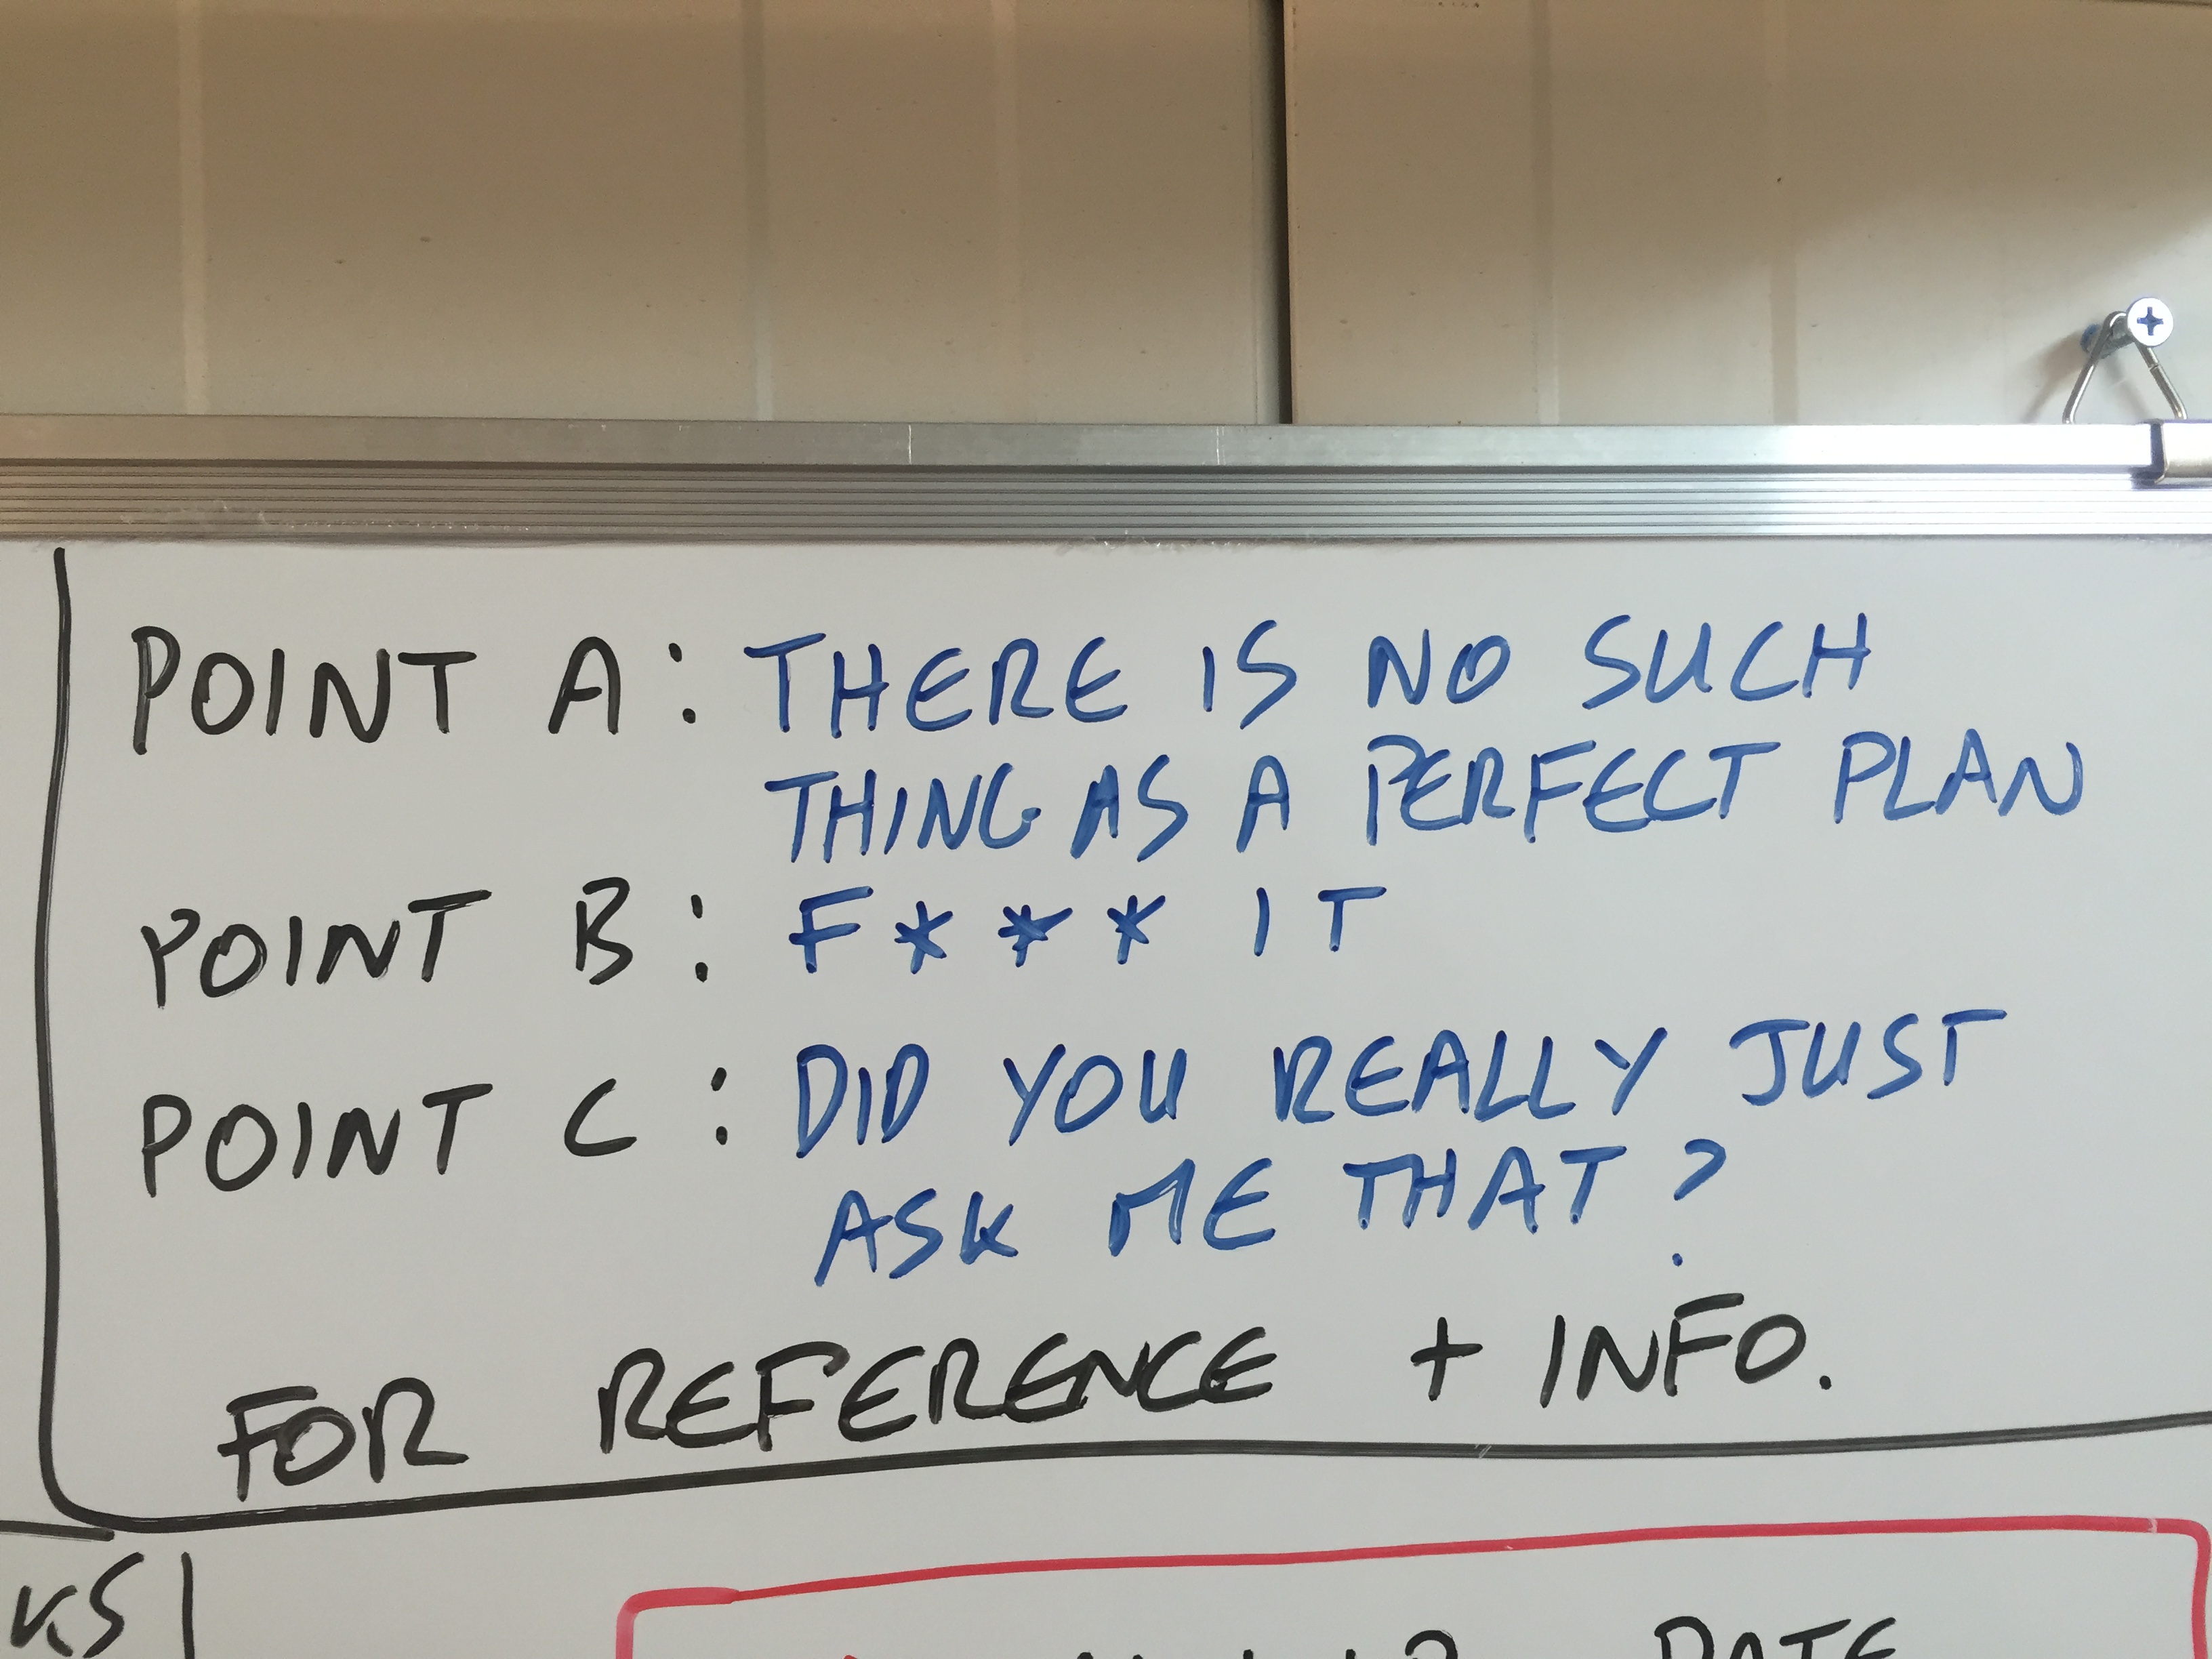 POINT A: THERE IS NO SUCH
THING AS A PERFECT PLAN
POINT B: F*** IT
POINT C: DID YOU REALLY JUST
ASK ME THAT?
FOR REFERENCE + INFO.
KS
DATE